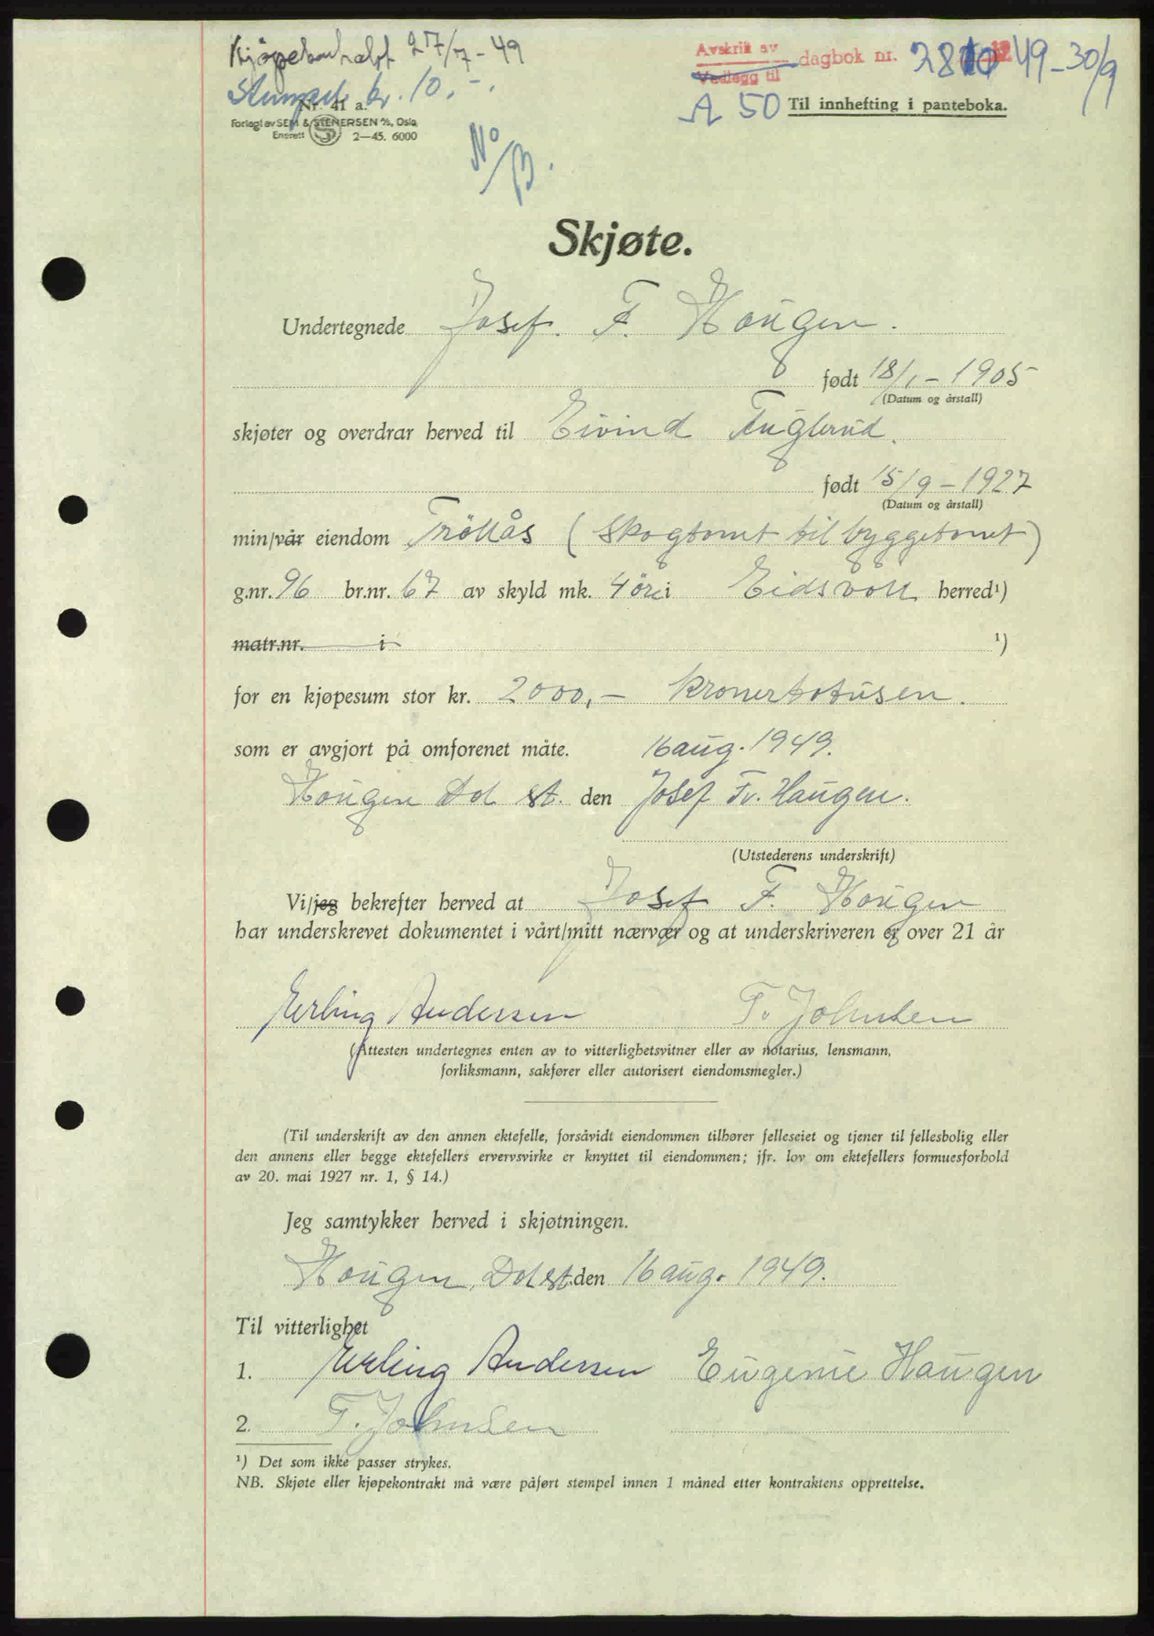 Kjöpekontrakt 27/7-49
Stempel kr. 10,-.
Nr. 41 a.
Forlagt av SEM & STENERSEN A/S, Oslo
Enerett S 2—45. 6000
No/B.
Avskrift av
Vedlegg til dagbok nr. 2810 49-30/9
A 50 Til innhefting i panteboka.
Skjøte.
Undertegnede Josef. F. Haugen.
født 18/1-1905
(Datum og årstall)
skjøter og overdrar herved til Eivind Fuglerud.
født 15/9-1927
(Datum og årstall)
min/vår eiendom Tröllås (Skogtomt til byggetomt)
g.nr. 96 br.nr. 67 av skyld mk. 4 öre i Eidsvoll herred¹)
matr.nr. i ¹)
for en kjøpesum stor kr. 2000,- kronertotusen.
som er avgjort på omforenet måte. 16 aug. 1949.
Haugen Dal st. den Josef Fr. Haugen.
(Utstederens underskrift)
Vi/jeg bekrefter herved at Josef F. Haugen
har underskrevet dokumentet i vårt/mitt nærvær og at underskriveren er over 21 år
Erling Andersen F. Johnsen
(Attesten undertegnes enten av to vitterlighetsvitner eller av notarius, lensmann,
forliksmann, sakfører eller autorisert eiendomsmegler.)
(Til underskrift av den annen ektefelle, forsåvidt eiendommen tilhører felleseiet og tjener til fellesbolig eller
den annens eller begge ektefellers ervervsvirke er knyttet til eiendommen; jfr. lov om ektefellers formuesforhold
av 20. mai 1927 nr. 1, § 14.)
Jeg samtykker herved i skjøtningen.
Haugen, Dal st. den 16 aug. 1949.
Til vitterlighet
1. Erling Andersen Eugenie Haugen
2. F. Johnsen
¹) Det som ikke passer strykes.
NB. Skjøte eller kjøpekontrakt må være påført stempel innen 1 måned etter kontraktens opprettelse.